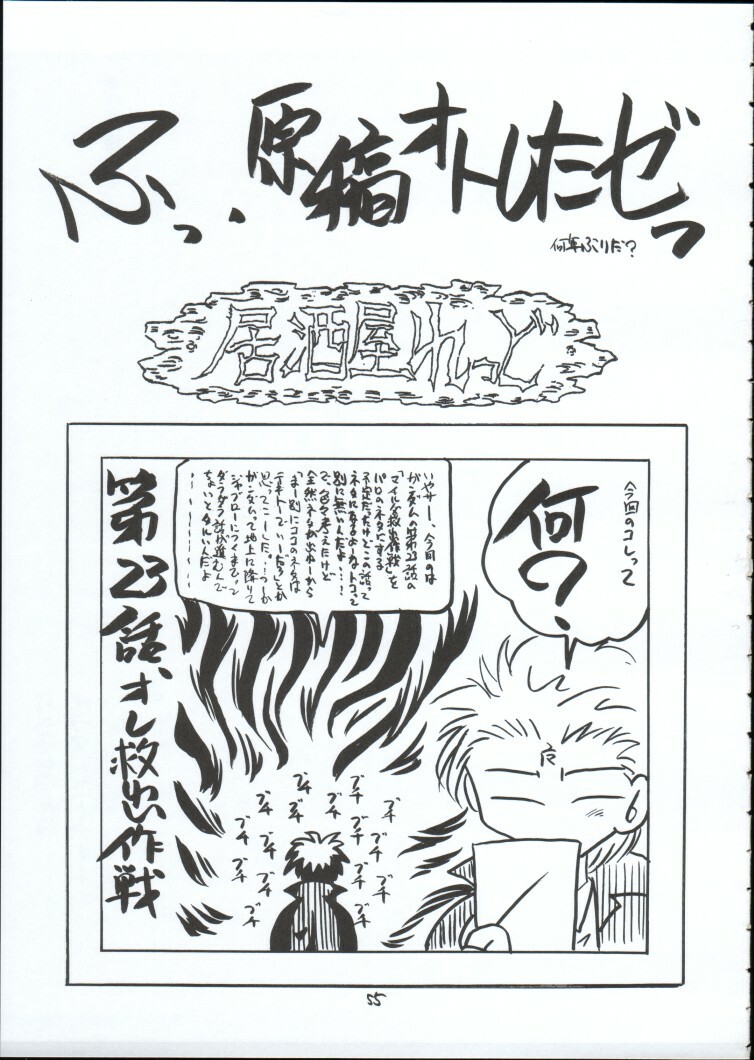 ふっ、原稿オトしたゼっ
何年ぶりだ?
居酒屋れっど
今回のコレって
何?
いやサー、今回のは
ガンダムの第23話の
「マイルダ救出作戦」を
パロのネタにする
予定だったけどこの話って
ネタになるよーなトコって
別に無いんだよ…!
で、色々考えたけど
全然ネタが出ねーから
「まー別にココのネタは
思ってこーした。…つーか
ガンダムって地上に降りて
ジャブローにつくまでって
ダラダラ話が進むんで
ちょいとタルいんだよ
第23話、オレ救出作戦
ブチ ブチ ブチ ブチ ブチ ブチ ブチ ブチ ブチ ブチ ブチ ブチ ブチ ブチ ブチ ブチ ブチ
55